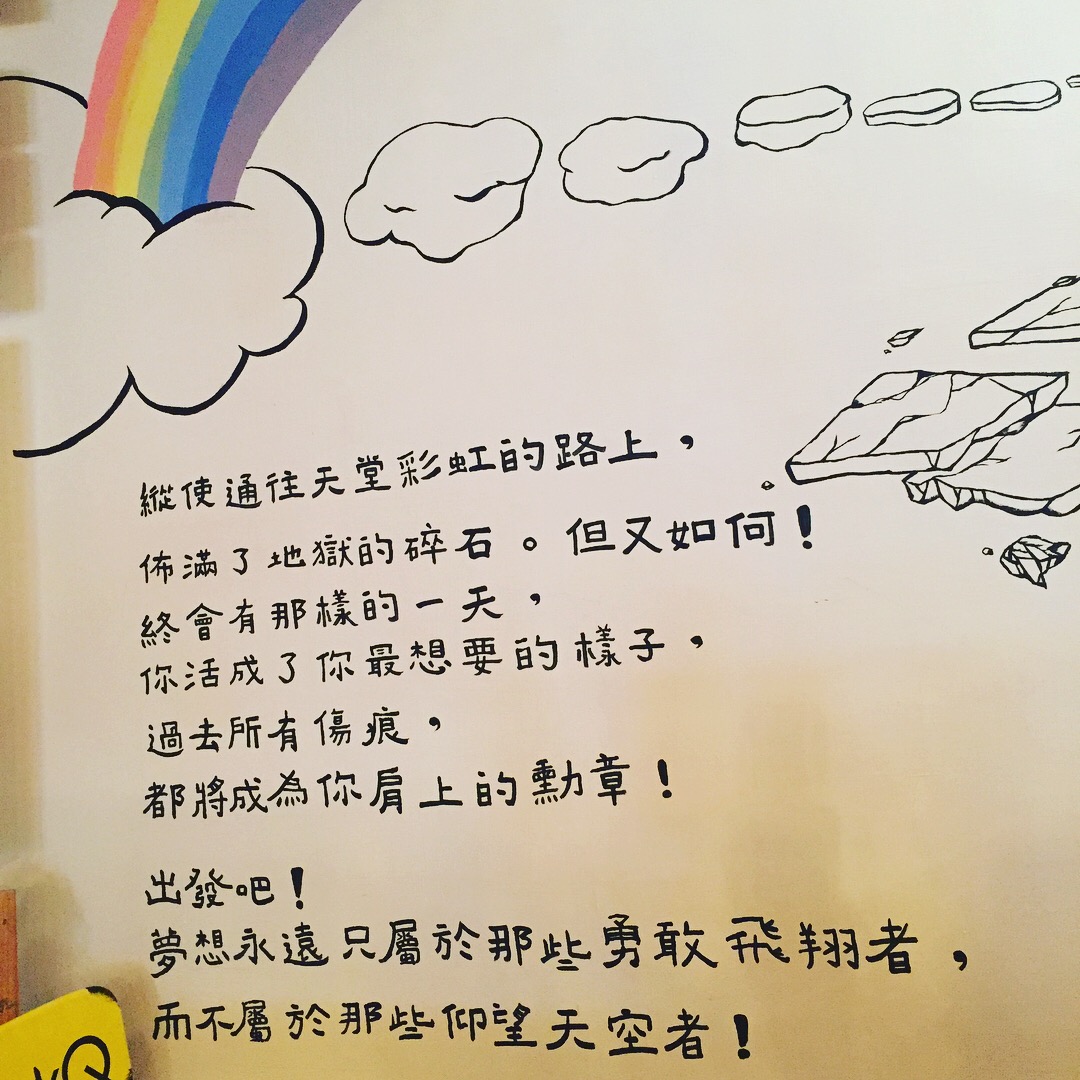 縱使通往天堂彩虹的路上，
佈滿了地獄的碎石。但又如何！
終會有那樣的一天，
你活成了你最想要的樣子，
過去所有傷痕，
都將成為你肩上的勳章！
出發吧！
夢想永遠只屬於那些勇敢飛翔者，
而不屬於那些仰望天空者！